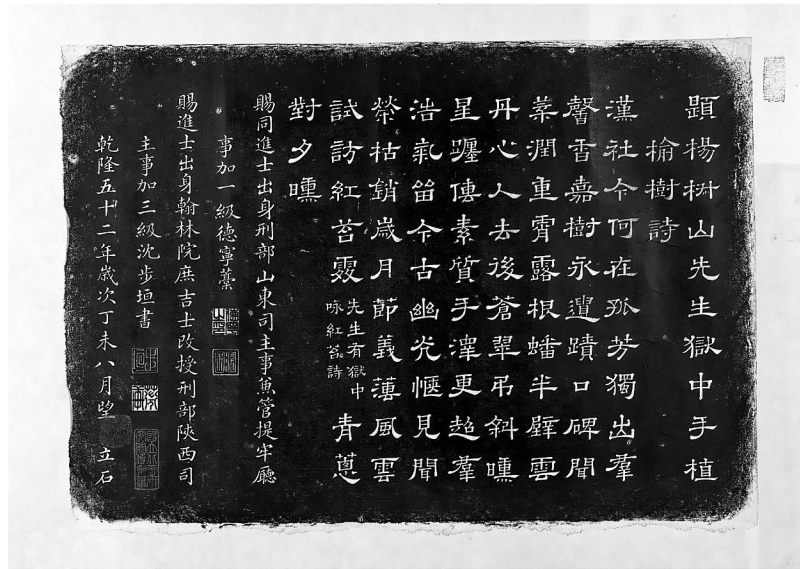 題楊椒山先生獄中手植
榆樹詩
漢社今何在孤芳獨出羣
馨香嘉樹永遺蹟口碑聞
葉潤重霄露根蟠半壁雲
丹心人去後蒼翠弔斜曛
星躔傳素質手澤更超羣
浩氣留今古幽光愜見聞
榮枯銷歲月節義薄風雲
試訪紅苔夢先生有獄中咏紅苔詩青蔥
對夕曛
賜同進士出身刑部山東司主事兼管提牢廳
事加一級德寧藁
賜進士出身翰林院庶吉士改授刑部陝西司
主事加三級沈步垣書
乾隆五十二年歲次丁未八月望 立石